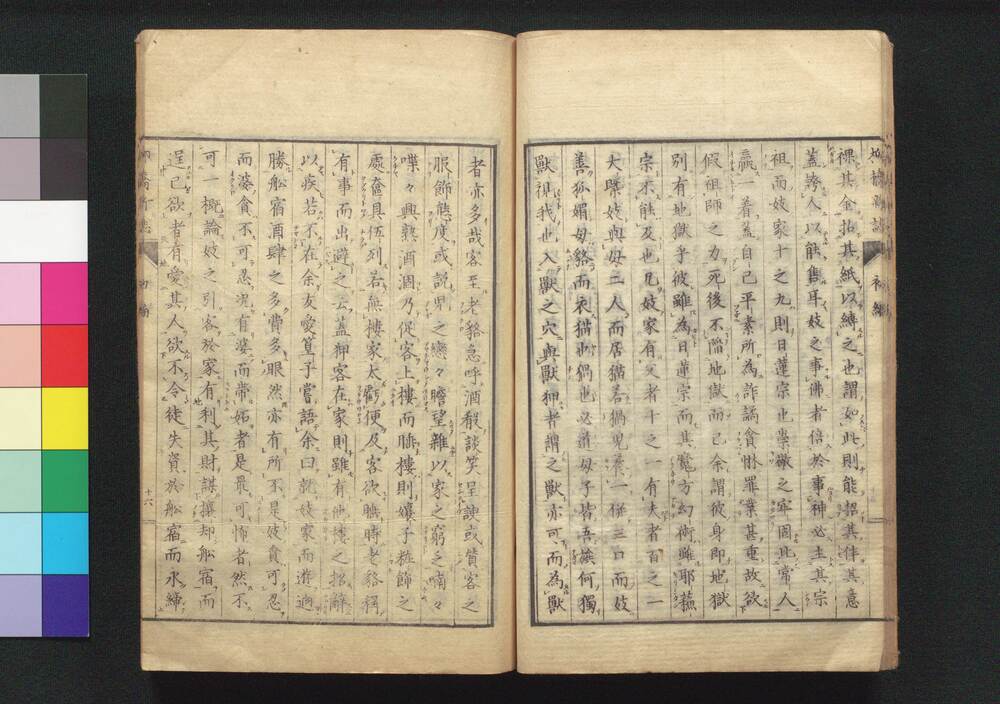 裸其金拈其紙以縛之也謂如此則能招其伴其意
蓋誇人以能售耳妓之事佛者倍於事神必主其宗
祖而妓家十之九則日蓮宗也崇敬之牢固比常人
贏一着蓋自己平素所為詐譎貪惏罪業甚重故欲
假祖師之力死後不墮地獄而已余謂彼身即地獄
別有地獄乎彼雖為日蓮宗而其魔方幻術雖耶蘇
宗不能及也凡妓家有父者十之一有夫者百之一
大率妓與母二人而居猫若猧児養一併三口而妓
善狐媚母貉而衣猫也猧也必清母子皆吾儕何獨
獸視我也入獸之穴與獸狎者謂之獸亦可而為獸
者亦多哉客至老貉急呼酒殽談笑呈諛或贊客之
服飾態度或説児之戀々瞻望雜以家之窮乏喃々
喋々興熟酒涸乃促客上樓而臥樓則孃子粧飾之
處奩具伍列若無樓家太虧便及客欲臥時老貉稱
有事而出避之云蓋狎客在家則雖有他樓之招辭
以疾若不在余友愛筧子嘗語余曰就妓家而遊適
勝舩宿酒肆之多費多眼然亦有所不是妓貪可忍
而婆貪不可忍况有婆而帶妬者是最可怖者然不
可一概論妓之引客於家有利其財謀攘却舩宿而
逞己欲者有愛其人欲不令徒失資於舩宿而水締
初編
十六